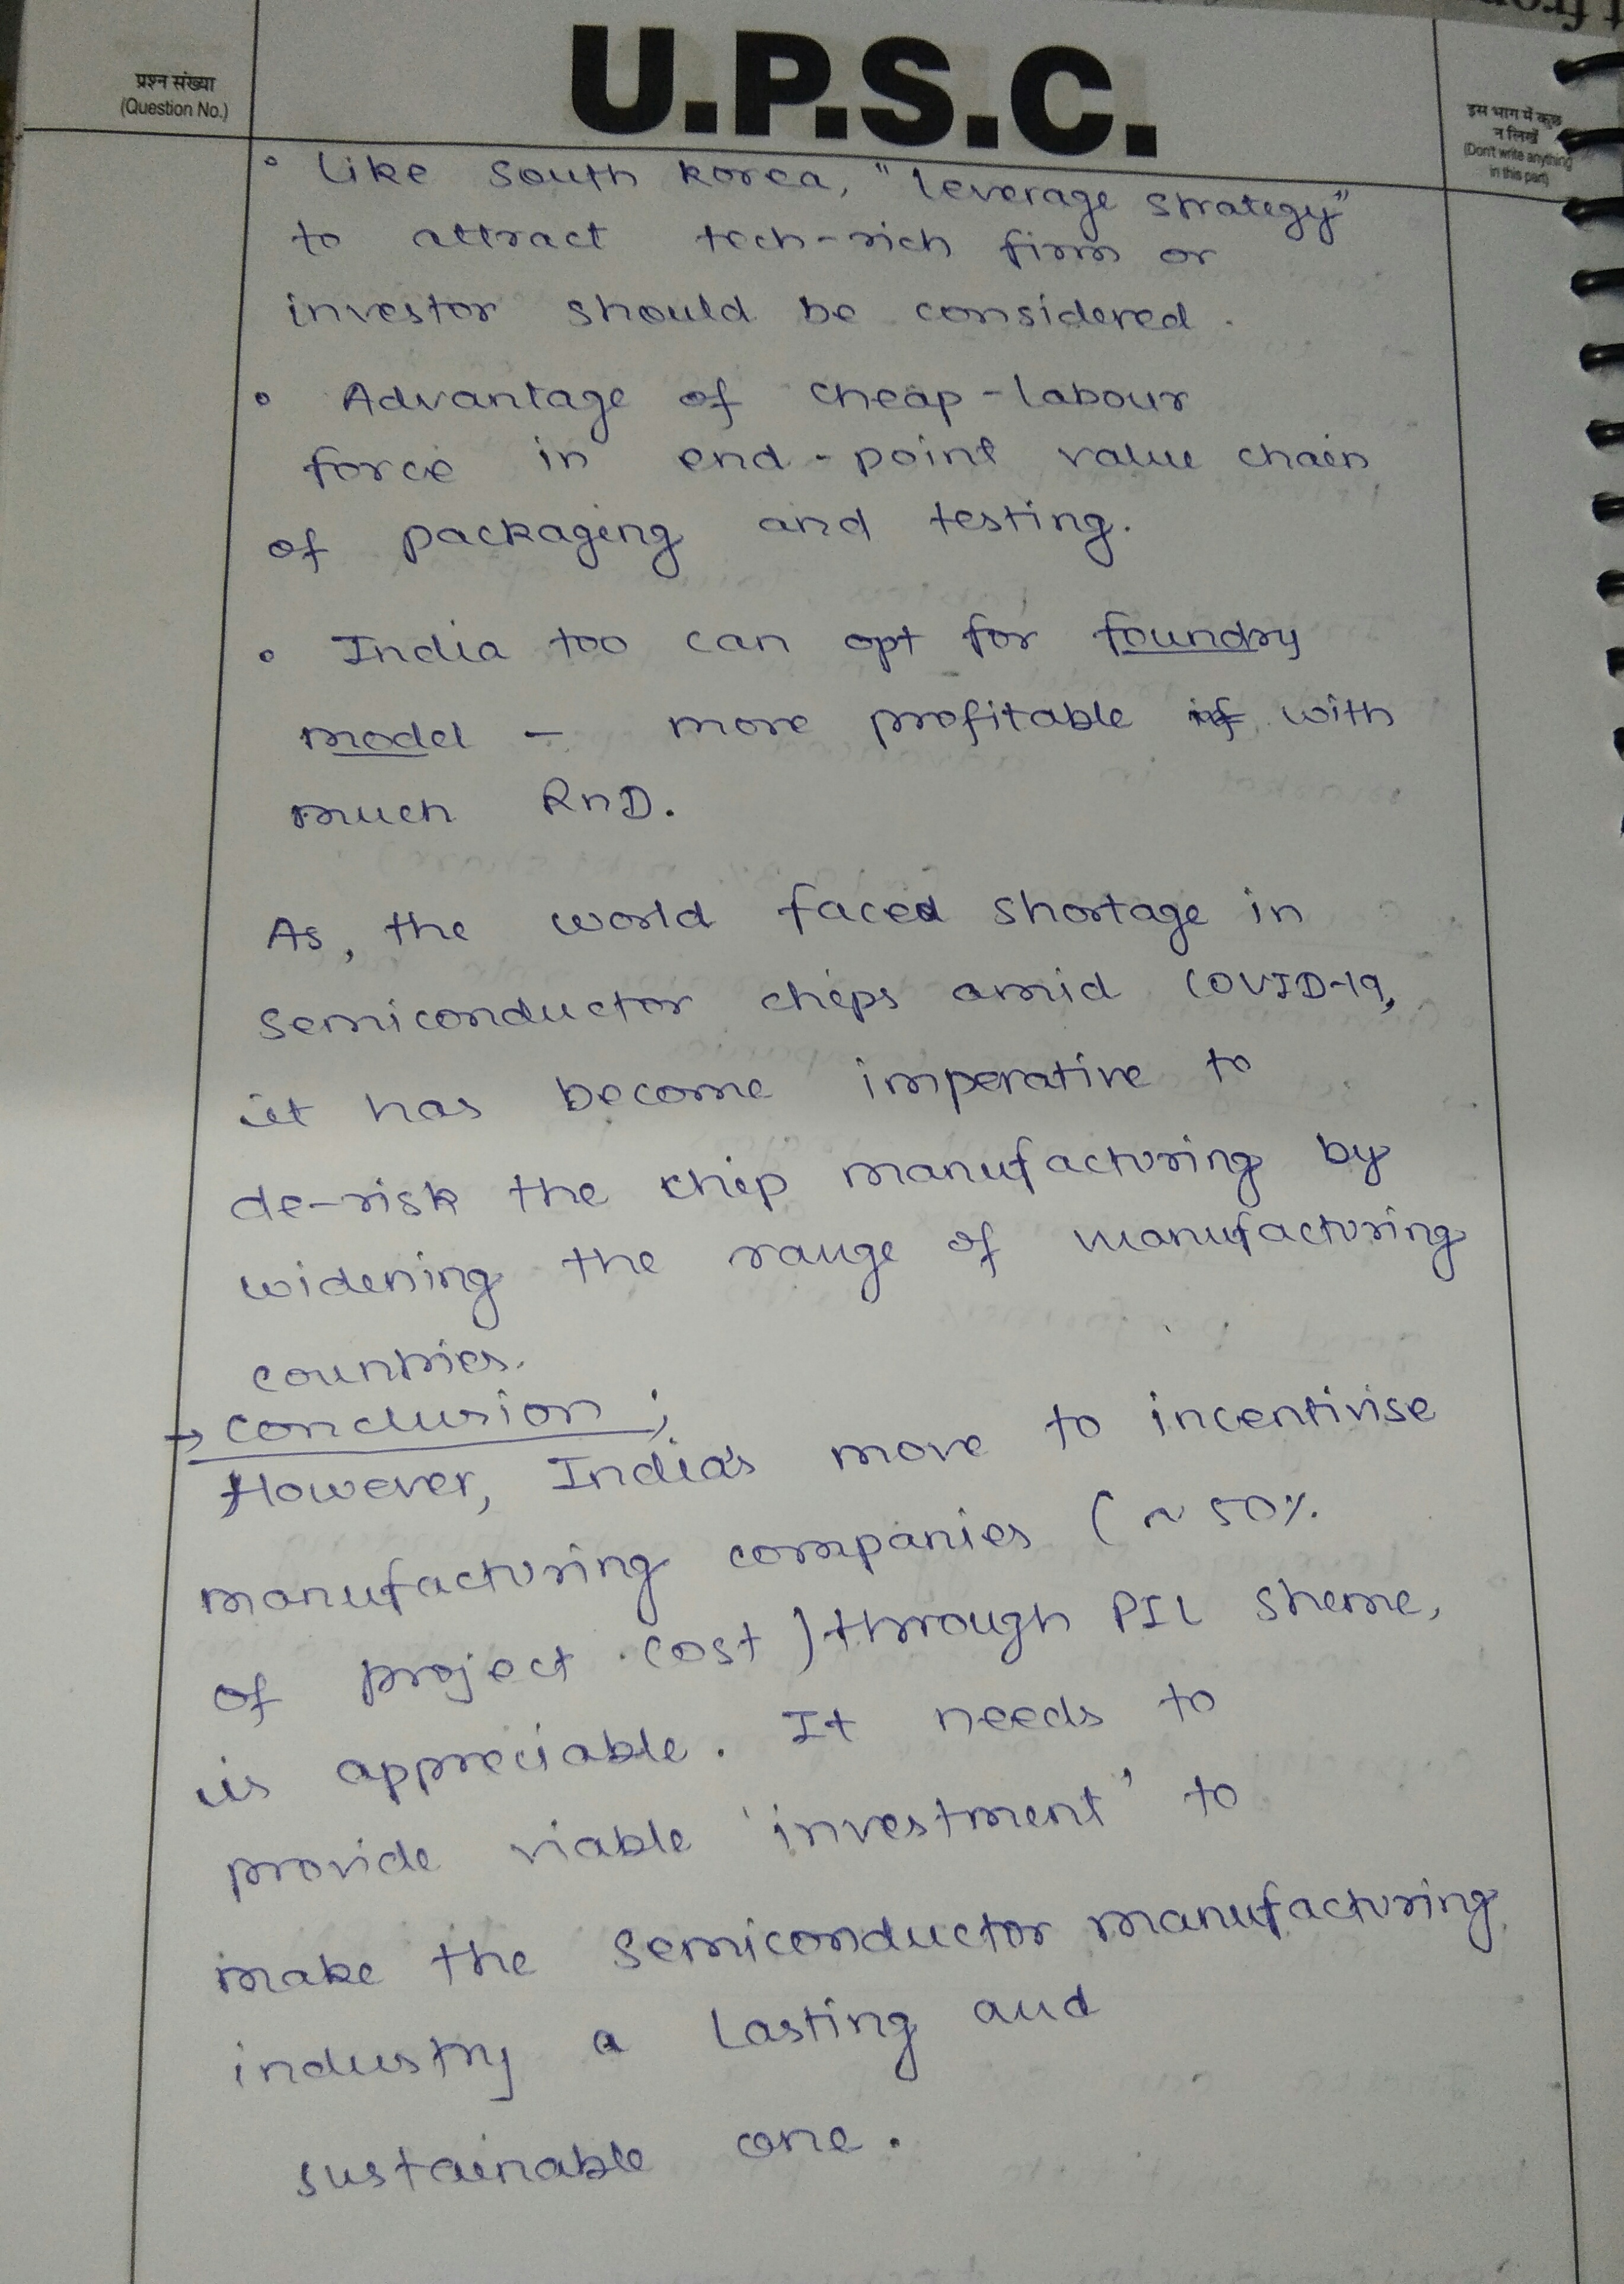 U.P.S.C.
प्रश्न संख्या
(Question No.)
इस भाग में कुछ
न लिखें
(Don't write anything
in this part)
• Like South Korea, "leverage strategy"
to attract tech-rich firm or
investor should be considered.
• Advantage of cheap-labour
force in end-point value chain
of packaging and testing.
• India too can opt for foundry
model – more profitable if with
much RnD.
As, the world faced shortage in
semiconductor chips amid COVID-19,
it has become imperative to
de-risk the chip manufacturing by
widening the range of manufacturing
countries.
→ Conclusion ;
However, India's move to incentivise
manufacturing companies (~ 50%
of project cost) through PIL sheme,
is appreciable. It needs to
provide viable 'investment' to
make the semiconductor manufacturing
industry a lasting and
sustainable one.